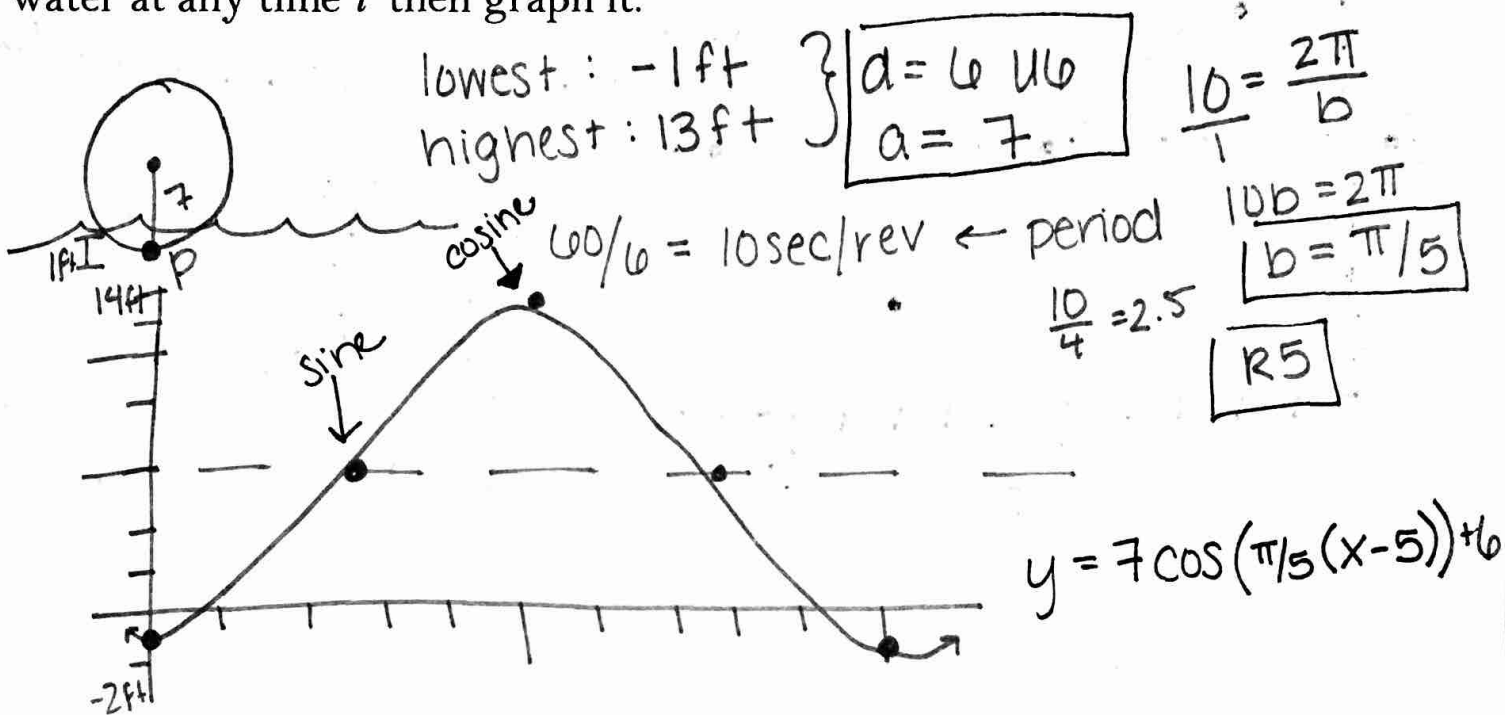 water at any time t then graph it.
lowest : -1ft
highest : 13ft
d = 6 U6
a = 7
10/1 = 2π/b
10b = 2π
b = π/5
7
1ft
P
60/6 = 10sec/rev ← period
10/4 = 2.5
R5
14ft
cosine
sine
y = 7cos(π/5(x-5))+6
-2ft